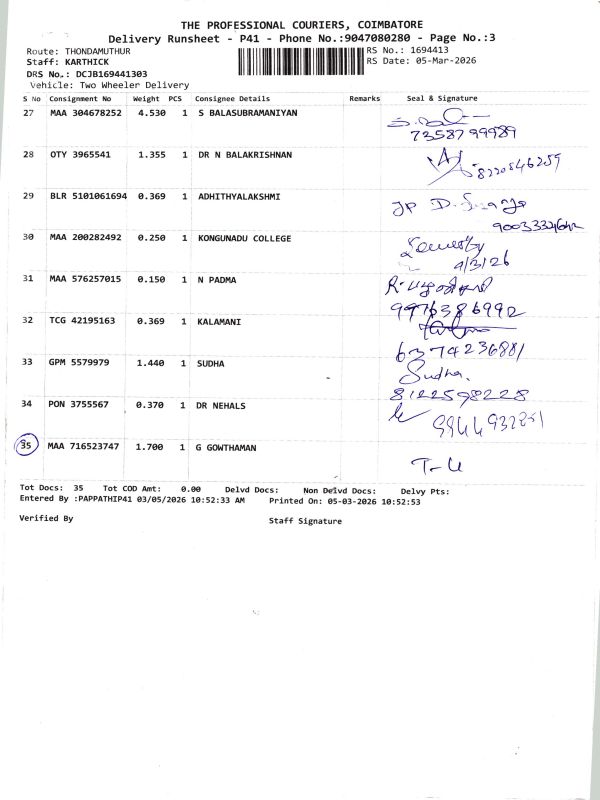 THE PROFESSIONAL COURIERS, COIMBATORE
Delivery Runsheet - P41 - Phone No.:9047080280 - Page No.:3
Route: THONDAMUTHUR RS No.: 1694413
Staff: KARTHICK RS Date: 05-Mar-2026
DRS No.: DCJB169441303
Vehicle: Two Wheeler Delivery
S No Consignment No Weight PCS Consignee Details Remarks Seal & Signature
27 MAA 304678252 4.530 1 S BALASUBRAMANIYAN
7358799989
28 OTY 3965541 1.355 1 DR N BALAKRISHNAN
8220546259
29 BLR 5101061694 0.369 1 ADHITHYALAKSHMI
JP D.
30 MAA 200282492 0.250 1 KONGUNADU COLLEGE
4/3/26
31 MAA 576257015 0.150 1 N PADMA
9976386992
32 TCG 42195163 0.369 1 KALAMANI
6374236881
33 GPM 5579979 1.440 1 SUDHA
Sudha.
8122598228
34 PON 3755567 0.370 1 DR NEHALS
35 MAA 716523747 1.700 1 G GOWTHAMAN
T-4
Tot Docs: 35 Tot COD Amt: 0.00 Delvd Docs: Non Delvd Docs: Delvy Pts:
Entered By :PAPPATHIP41 03/05/2026 10:52:33 AM Printed On: 05-03-2026 10:52:53
Verified By Staff Signature